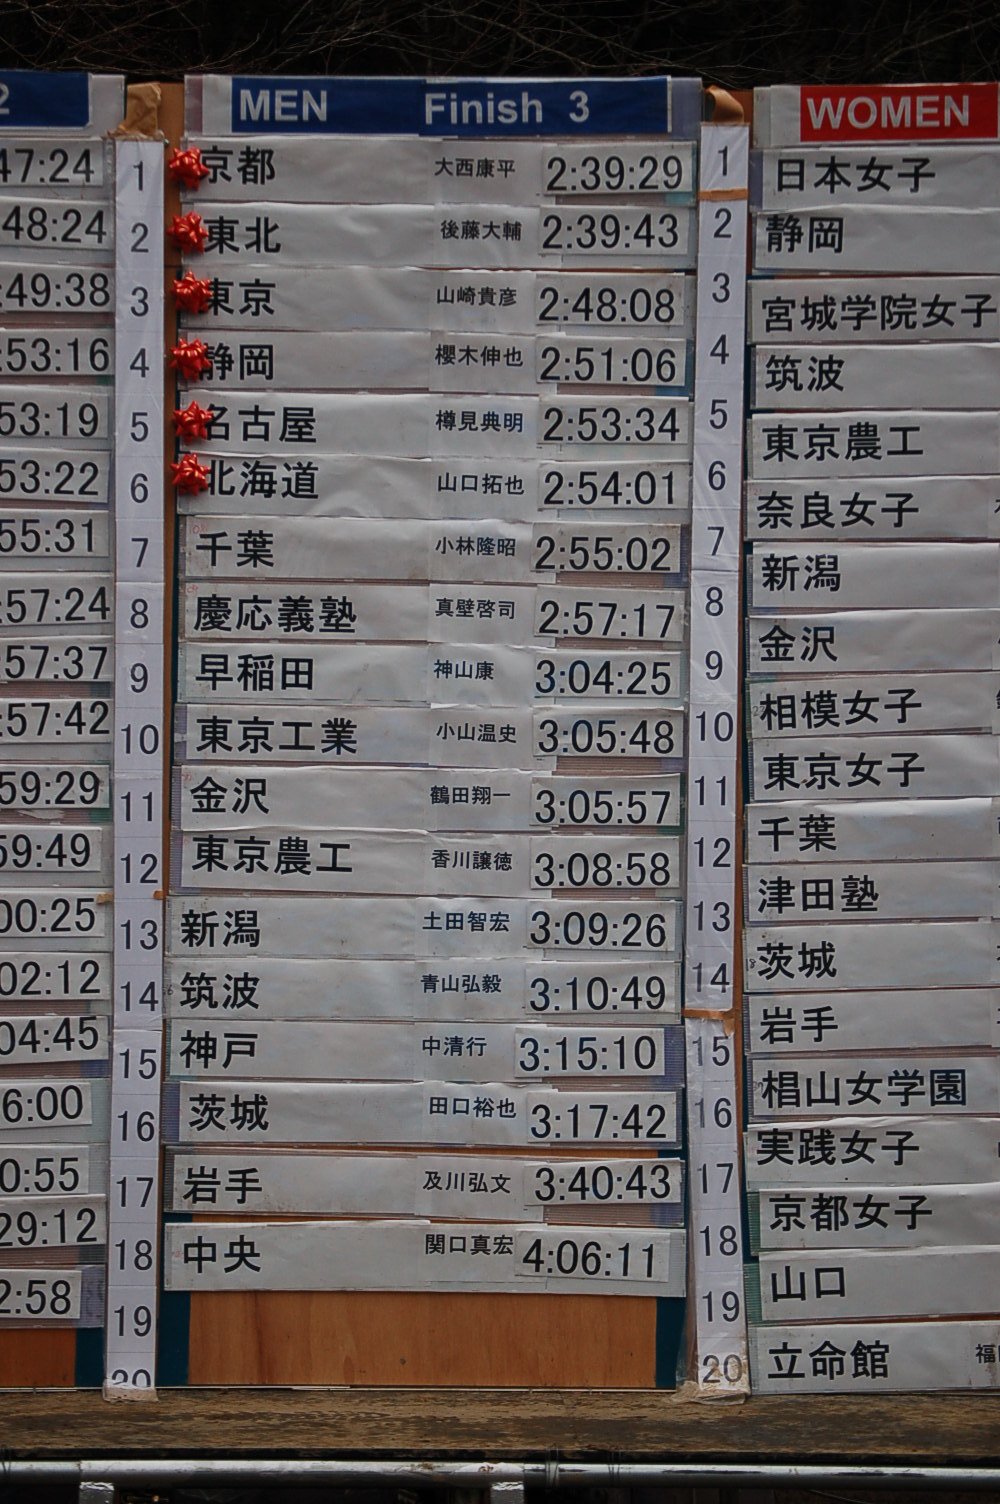 2 MEN Finish 3 WOMEN
47:24 1 京都 大西康平 2:39:29 1 日本女子
48:24 2 東北 後藤大輔 2:39:43 2 静岡
:49:38 3 東京 山崎貴彦 2:48:08 3 宮城学院女子
:53:16 4 静岡 櫻木伸也 2:51:06 4 筑波
53:19 5 名古屋 樽見典明 2:53:34 5 東京農工
53:22 6 北海道 山口拓也 2:54:01 6 奈良女子
55:31 7 千葉 小林隆昭 2:55:02 7 新潟
:57:24 8 慶応義塾 真壁啓司 2:57:17 8 金沢
:57:37 9 早稲田 神山康 3:04:25 9 相模女子
:57:42 10 東京工業 小山温史 3:05:48 10 東京女子
59:29 11 金沢 鶴田翔一 3:05:57 11 千葉
59:49 12 東京農工 香川譲徳 3:08:58 12 津田塾
00:25 13 新潟 土田智宏 3:09:26 13 茨城
02:12 14 筑波 青山弘毅 3:10:49 14 岩手
04:45 15 神戸 中清行 3:15:10 15 椙山女学園
6:00 16 茨城 田口裕也 3:17:42 16 実践女子
0:55 17 岩手 及川弘文 3:40:43 17 京都女子
29:12 18 中央 関口真宏 4:06:11 18 山口
2:58 19 19 立命館
20 20